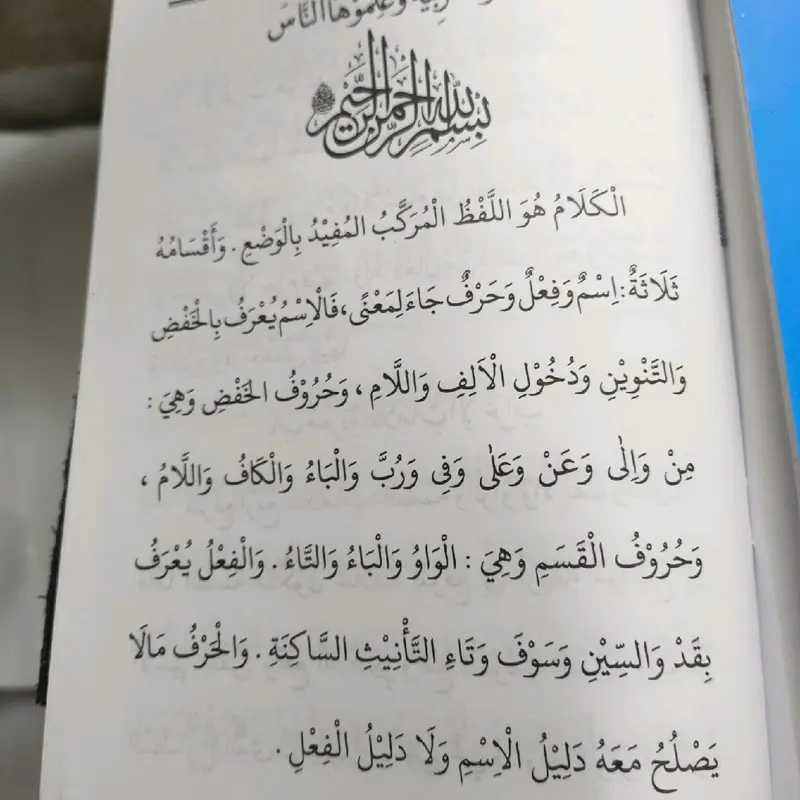 وَعَلِّمُوْهَا النَّاسَ
بِسْمِ اللهِ الرَّحْمٰنِ الرَّحِيْمِ
الْكَلَامُ هُوَ اللَّفْظُ الْمُرَكَّبُ المُفِيْدُ بِالْوَضْعِ . وَأَقْسَامُهُ
ثَلَاثَةٌ : اِسْمٌ وَفِعْلٌ وَحَرْفٌ جَاءَ لِمَعْنًى، فَالْاِسْمُ يُعْرَفُ بِالْخَفْضِ
وَالتَّنْوِيْنِ وَدُخُوْلِ الْاَلِفِ وَاللَّامِ ، وَحُرُوْفُ الخَفْضِ وَهِيَ :
مِنْ وَاِلٰى وَعَنْ وَعَلٰى وَفِى وَرُبَّ وَالْبَاءُ وَالْكَافُ وَاللَّامُ ،
وَحُرُوْفُ الْقَسَمِ وَهِيَ : الْوَاوُ وَالْبَاءُ وَالتَّاءُ . وَالْفِعْلُ يُعْرَفُ
بِقَدْ وَالسِّيْنِ وَسَوْفَ وَتَاءِ التَّأْنِيْثِ السَّاكِنَةِ . وَالْحَرْفُ مَالَا
يَصْلُحُ مَعَهُ دَلِيْلُ الْاِسْمِ وَلَا دَلِيْلُ الْفِعْلِ .